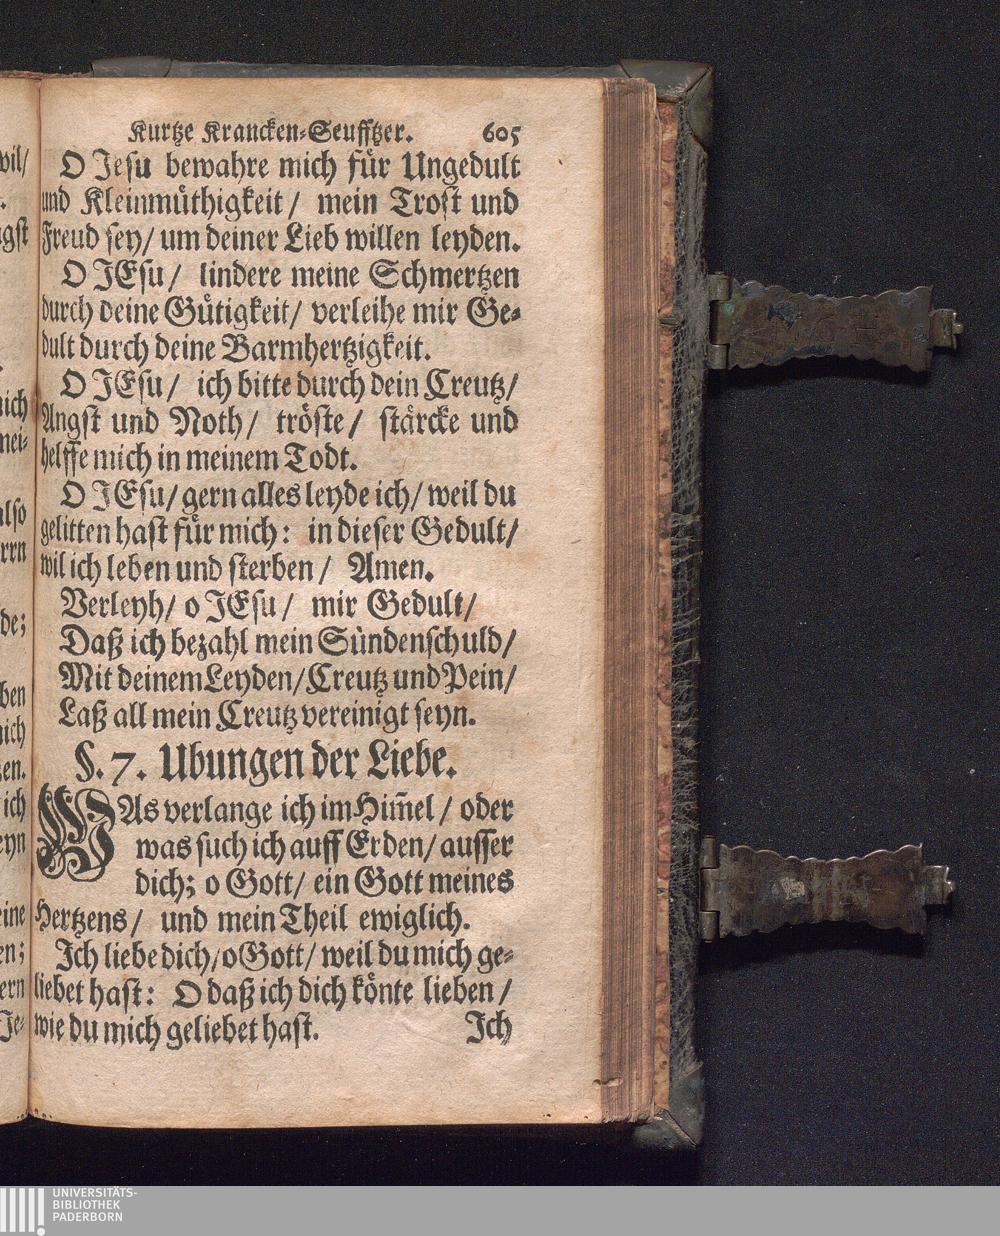 Kurtze Krancken-Seufftzer. 605
O Jesu bewahre mich für Ungedult
und Kleinmüthigkeit / mein Trost und
Freud sey / um deiner Lieb willen leyden.
O JEsu / lindere meine Schmertzen
durch deine Gütigkeit / verleihe mir Ge-
dult durch deine Barmhertzigkeit.
O JEsu / ich bitte durch dein Creutz /
Angst und Noth / tröste / stärcke und
helffe mich in meinem Todt.
O JEsu / gern alles leyde ich / weil du
gelitten hast für mich: in dieser Gedult /
wil ich leben und sterben / Amen.
Verleyh / o JEsu / mir Gedult /
Daß ich bezahl mein Sündenschuld /
Mit deinem Leyden / Creutz und Pein /
Laß all mein Creutz vereinigt seyn.
§. 7. Ubungen der Liebe.
WAs verlange ich im Him̃el / oder
was such ich auff Erden / ausser
dich; o Gott / ein Gott meines
Hertzens / und mein Theil ewiglich.
Ich liebe dich / o Gott / weil du mich ge-
liebet hast: O daß ich dich könte lieben /
wie du mich geliebet hast. Ich
UNIVERSITÄTS-
BIBLIOTHEK
PADERBORN